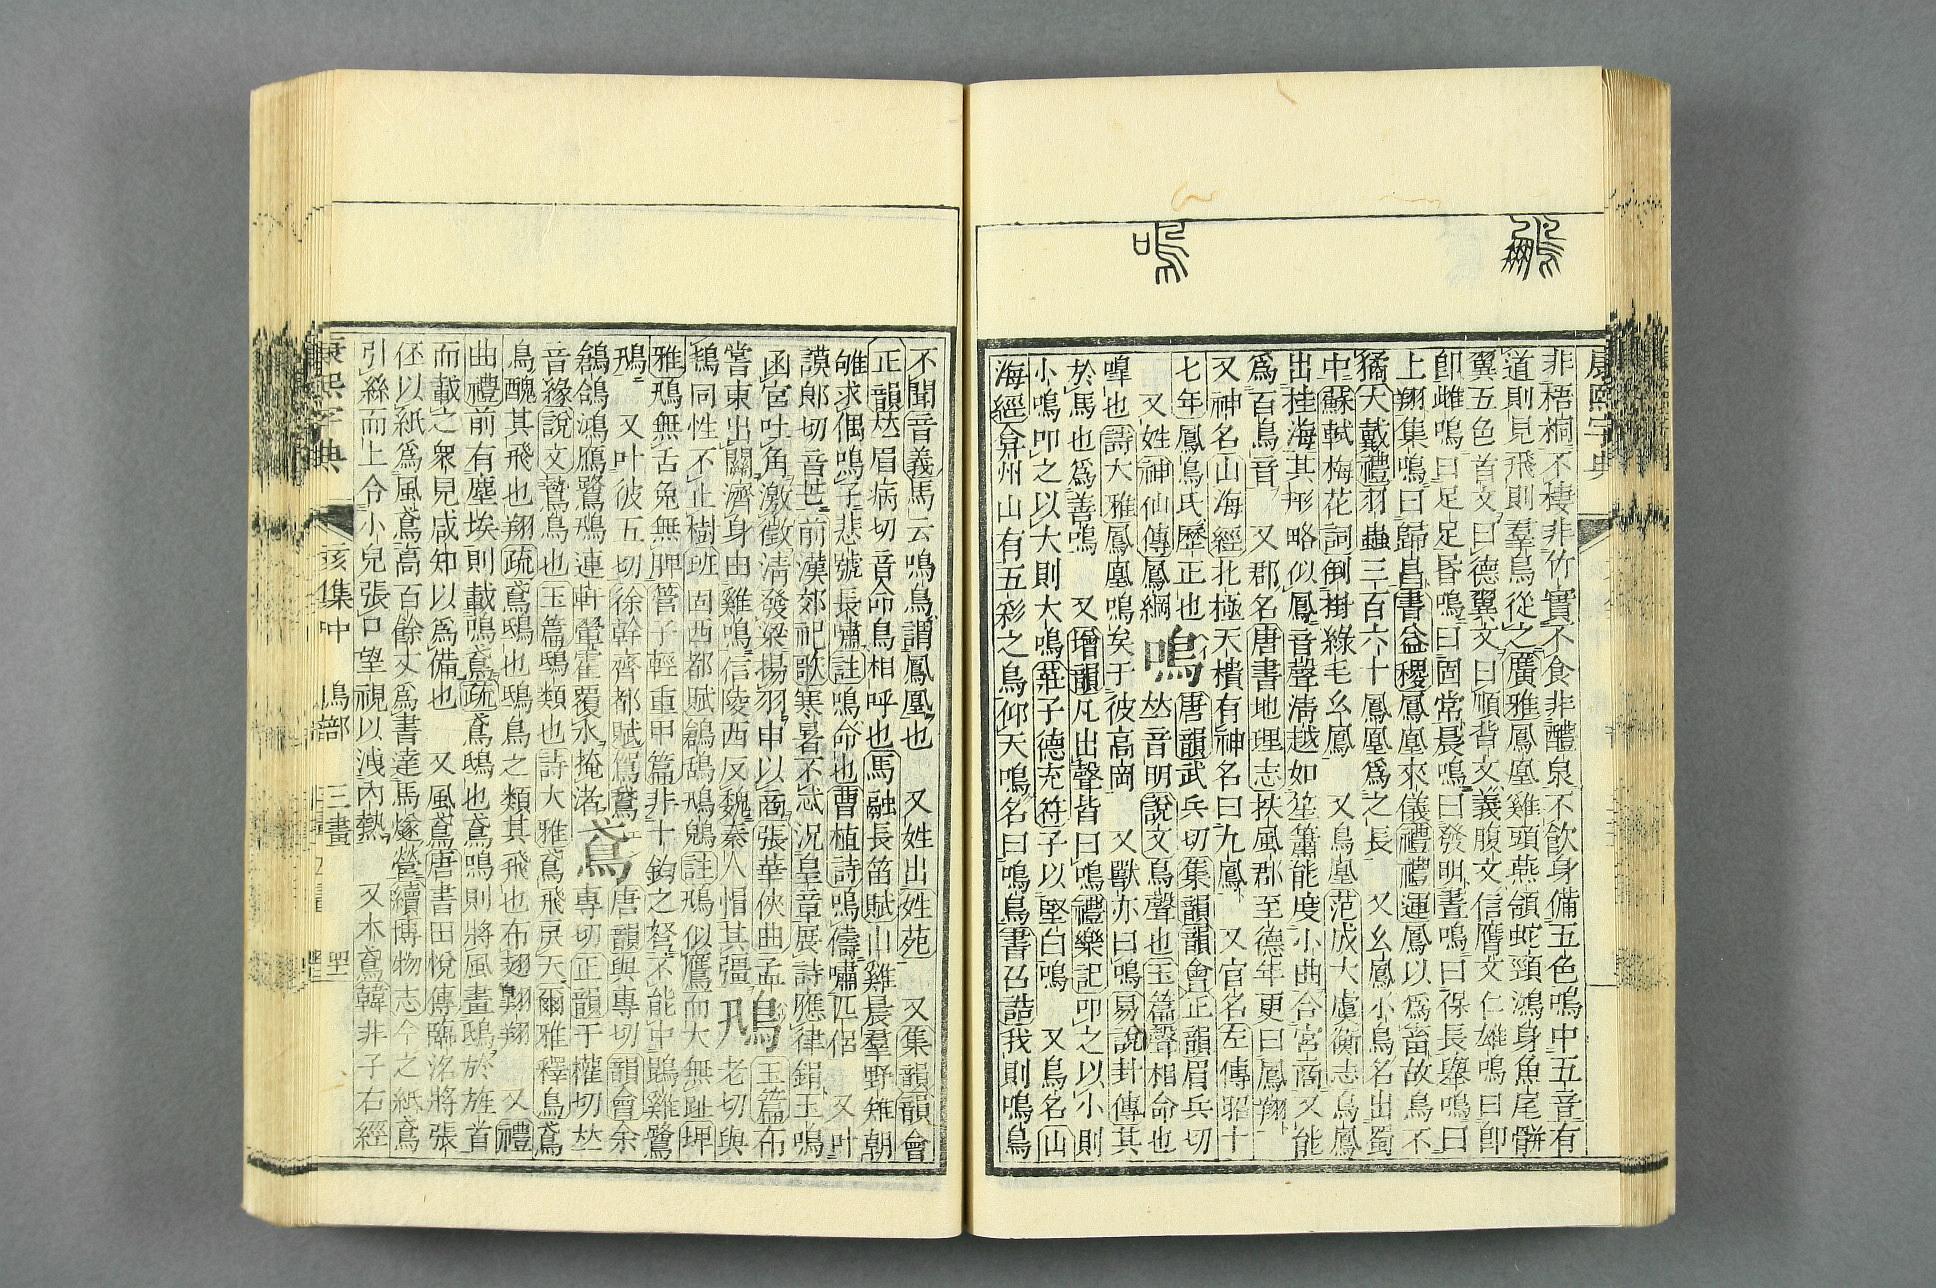 鳳
鳴
康熙字典
非梧桐不棲非竹實不食非醴泉不飮身備五色鳴中五音有
道則見飛則羣鳥從之廣雅鳳凰雞頭燕頷蛇頸鴻身魚尾骿
翼五色首文曰德翼文曰順背文義腹文信膺文仁雄鳴曰卽
卽雌鳴曰足足昏鳴曰固常晨鳴曰發明晝鳴曰保長舉鳴曰
上翔集鳴曰歸昌書益稷鳳凰來儀禮禮運鳳以爲畜故鳥不
獝大戴禮羽蟲三百六十鳳凰爲之長 又幺鳳小鳥名出蜀
中蘇軾梅花詞倒掛綠毛幺鳳 又鳥凰范成大虞衡志鳥鳳
出桂海其形略似鳳音聲淸越如笙簫能度小曲合宮商又能
爲百鳥音 又郡名唐書地理志扶風郡至德年更曰鳳翔
又神名山海經北極天樻有神名曰九鳳 又官名左傳昭十
七年鳳鳥氏歷正也
又姓神仙傳鳳綱
鳴
唐韻武兵切集韻韻會正韻眉兵切
𠀤音明說文鳥聲也玉篇聲相命也
嘷也詩大雅鳳凰鳴矣于彼高岡 又獸亦曰鳴易說卦傳其
於馬也爲善鳴 又增韻凡出聲皆曰鳴禮樂記叩之以小則
小鳴叩之以大則大鳴莊子德充符子以堅白鳴 又鳥名山
海經弇州山有五彩之鳥仰天鳴名曰鳴鳥書召誥我則鳴鳥
不聞音義馬云鳴鳥謂鳳凰也 又姓出姓苑 又集韻韻會
正韻𠀤眉病切音命鳥相呼也馬融長笛賦山雞晨羣野雉朝
雊求偶鳴子悲號長嘯註鳴命也曹植詩鳴儔嘯匹侶 又叶
謨郞切音芒前漢郊祀歌寒暑不忒況皇章展詩應律鋗玉鳴
函宮吐角激徵淸發梁揚羽申以商張華俠曲孟
嘗東出關濟身由雞鳴信陵西反魏秦人惜其彊
鳵
玉篇布
老切與
鴇同性不止樹班固西都賦鶬鴰鴇鶂註鴇似鴈而大無趾埤
雅鴇無舌兔無脾管子輕重甲篇非十鈞之弩不能中鵾雞鷺
鴇 又叶彼五切徐幹齊都賦駕鵞
鶬鴰鴻鴈鷺鴇連軒翬霍覆水掩渚
鳶
唐韻與專切韻會余
專切正韻于權切𠀤
音緣說文鷙鳥也玉篇鴟類也詩大雅鳶飛戾天爾雅釋鳥鳶
鳥醜其飛也翔疏鳶鴟也鴟鳥之類其飛也布翅翺翔 又禮
曲禮前有塵埃則載鳴鳶疏鳶鴟也鳶鳴則將風畫鴟於旌首
而載之衆見咸知以爲備也 又風鳶唐書田悅傳臨洺將張
伾以紙爲風鳶高百餘丈爲書達馬燧營續博物志今之紙鳶
引絲而上令小兒張口望視以洩內熱 又木鳶韓非子右經
康熙字典 亥集中 鳥部 三畫